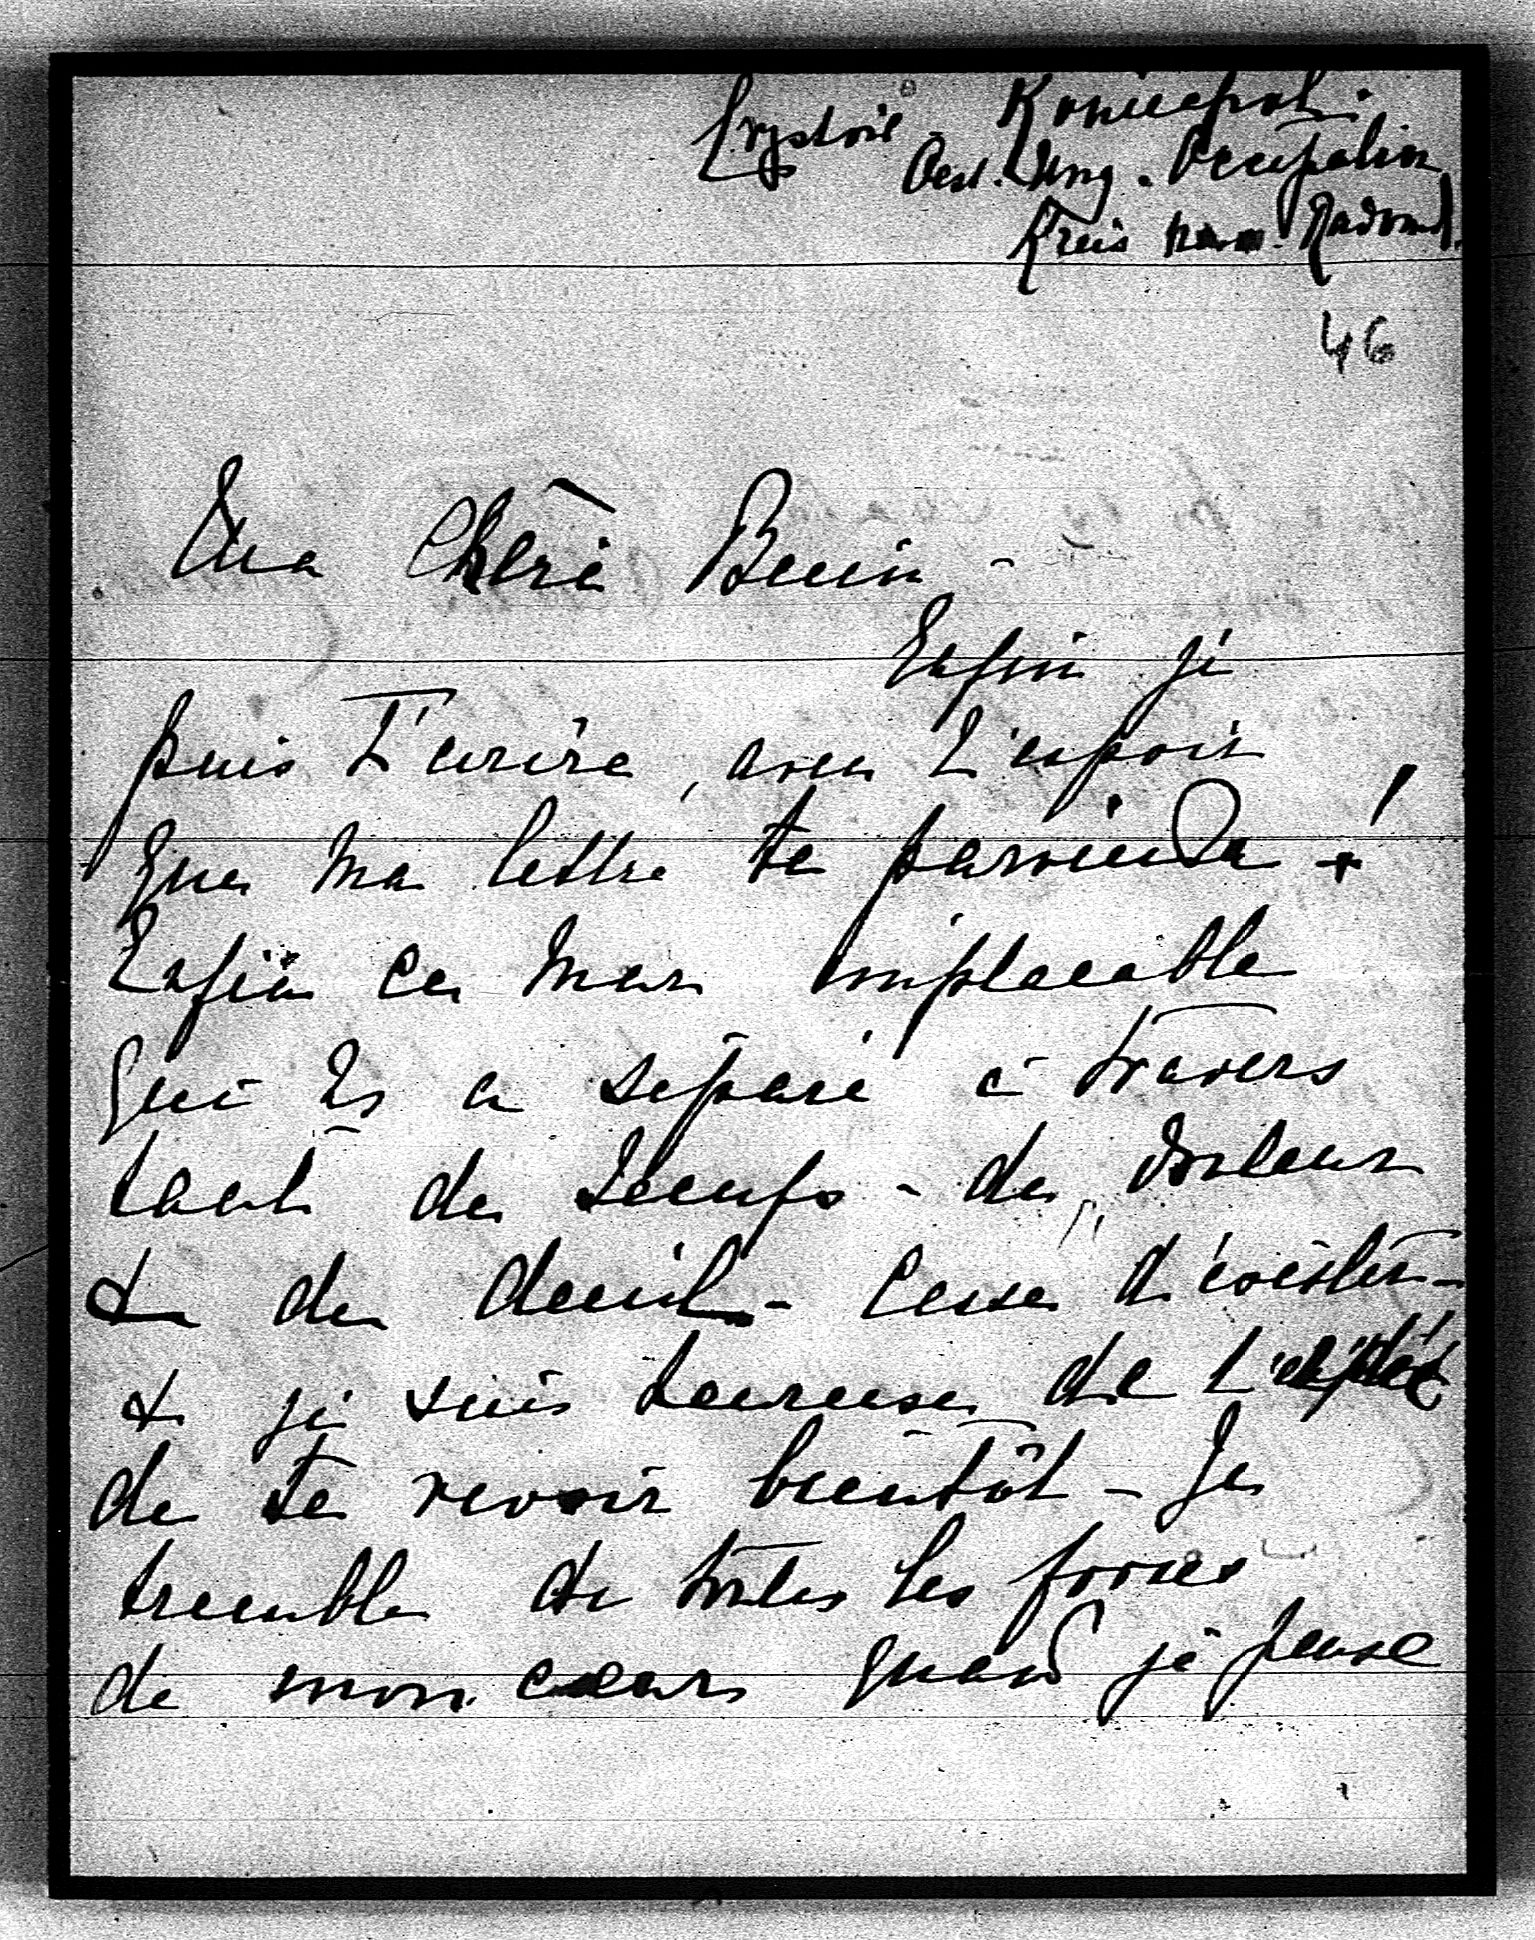 Koniecpol.
Oest. Ung. Occupation
Kreis Radomsk.
46
Ma Chère
Enfin je
puis t'écrire, avec l'espoir
que ma lettre te parvienda!
Enfin ce mur implacable
qui ns a séparé à travers
tant de temps - de douleur
& de deuil - cesse d'exister -
& je suis heureuse de l'espoir
de te revoir bientôt - Je
tremble de toutes les forces
de mon cœur quand je pense